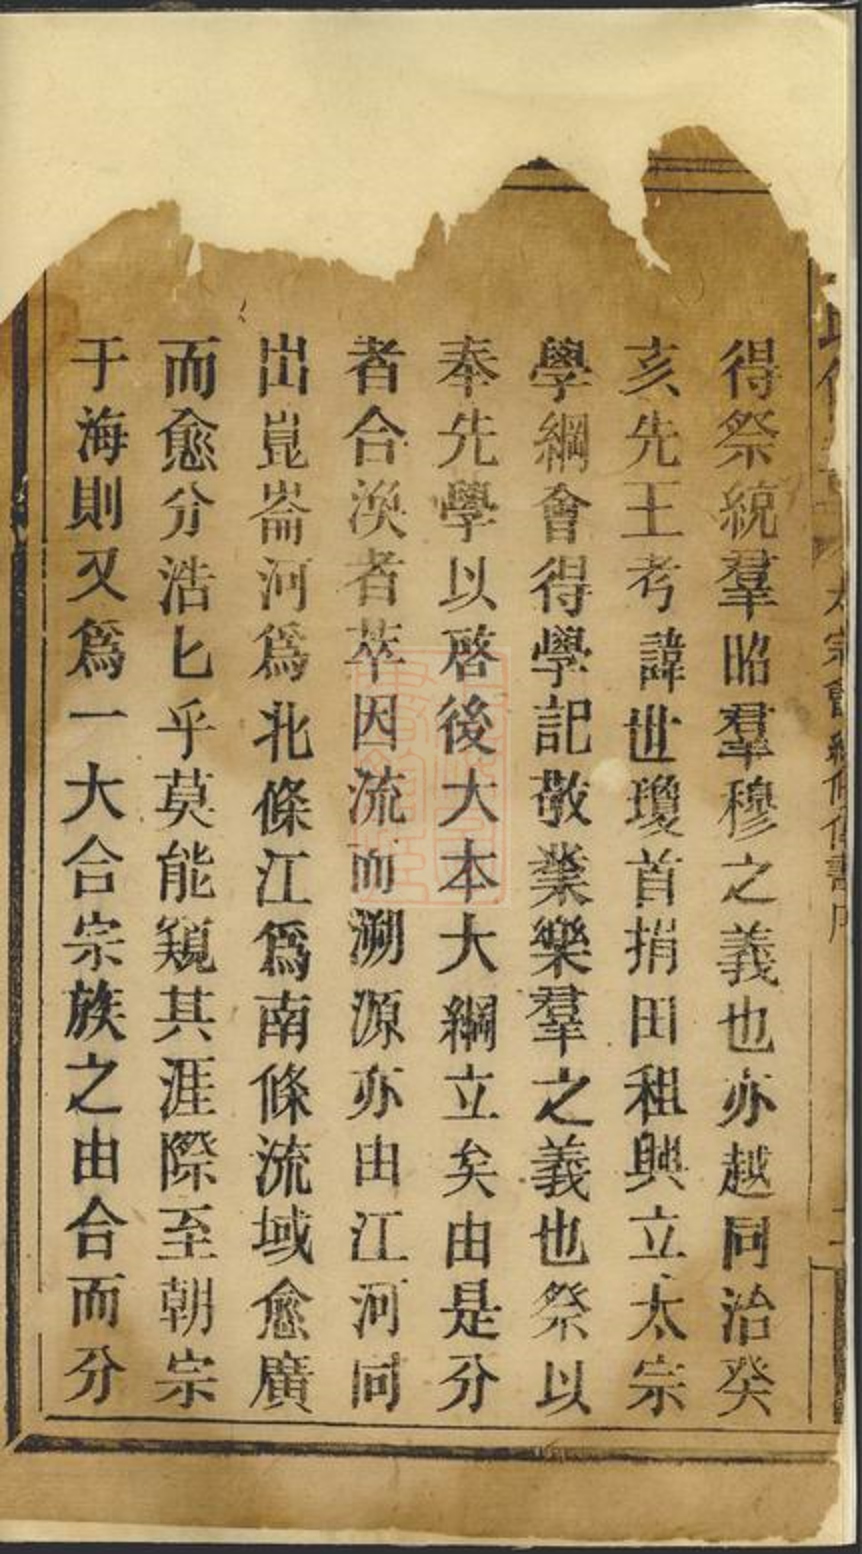 得祭統羣昭羣穆之義也亦越同治癸
亥先王考諱世瓊首捐田租興立太宗
學綱會得學記敬業樂羣之義也祭以
奉先學以啓後大本大綱立矣由是分
者合渙者萃因流而溯源亦由江河同
出崑崙河爲北條江爲南條流域愈廣
而愈分浩匕乎莫能窺其涯際至朝宗
于海則又爲一大合宗族之由合而分